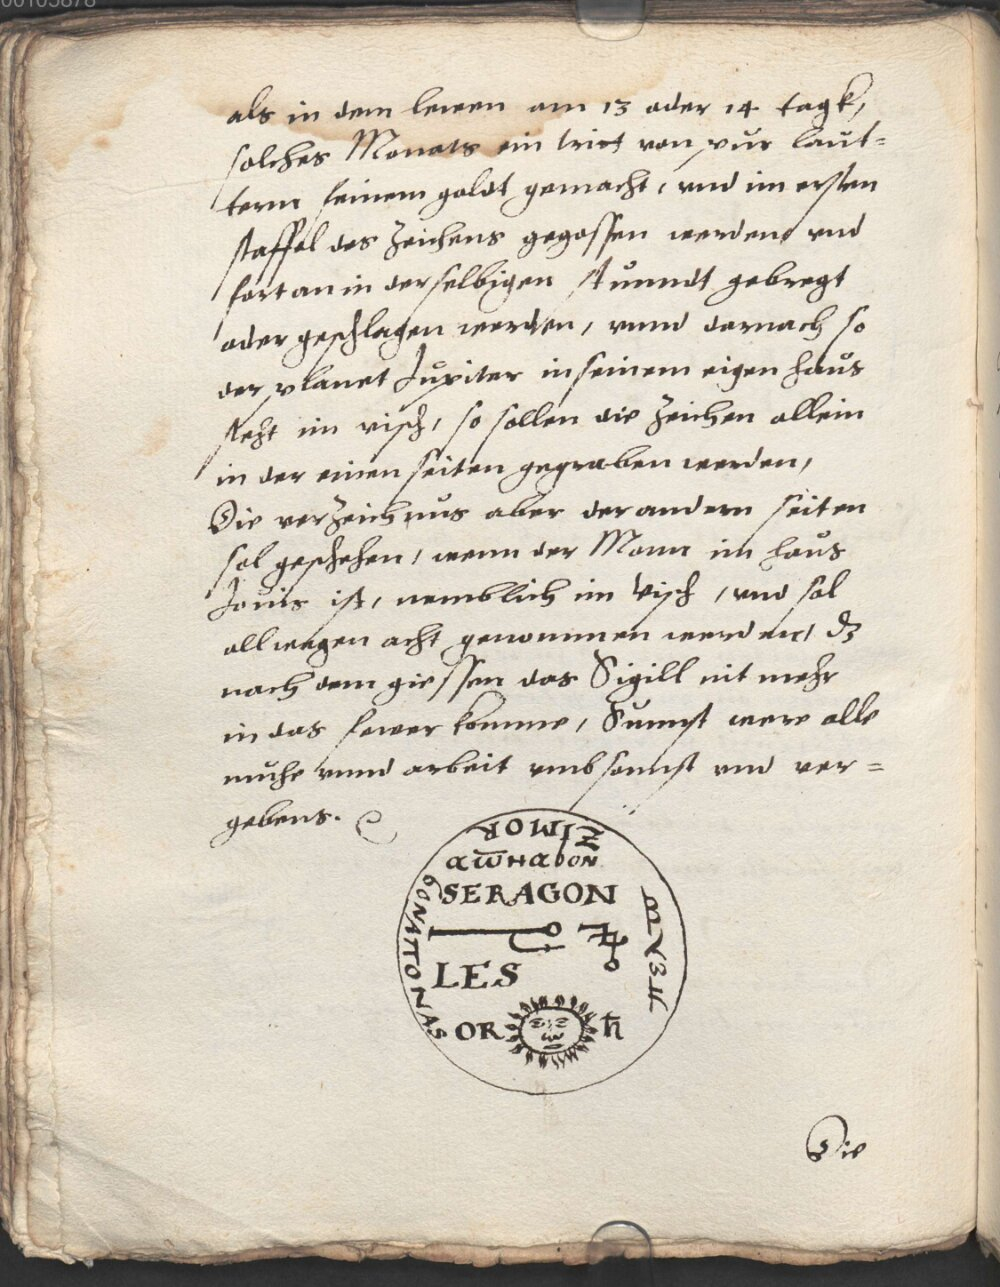 als in dem lewen am 13 oder 14 tagk,
solches Monats ein trit von pur laut=
term feinem goldt gemacht, vnd im ersten
staffel des Zeichens gegossen werden vnd
fort an in derselbigen stunndt gebregt
oder geschlagen werden, vnnd darnach so
der planet Jupiter in seinem eigen haus
steht im visch, so sollen die Zeichen allein
in der einen seiten gegraben werden,
Die verzeichnus aber der andern seiten
sol geschehen, wenn der Monn im haus
Jouis ist, nemblich im Visch, vnd sol
allwegen acht genommen werden, dz
nach dem giessen das Sigill nit mehr
in das fewer komme, Sunnst were alle
muhe vnnd arbeit vmb sonnst vnd ver=
gebens.
SERAGON
LES
OR ♄
Die